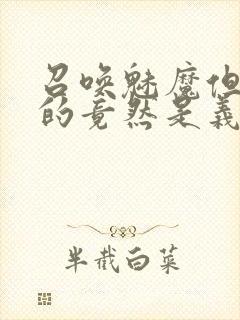 召唤魅魔但
的竟然是义
半截白菜